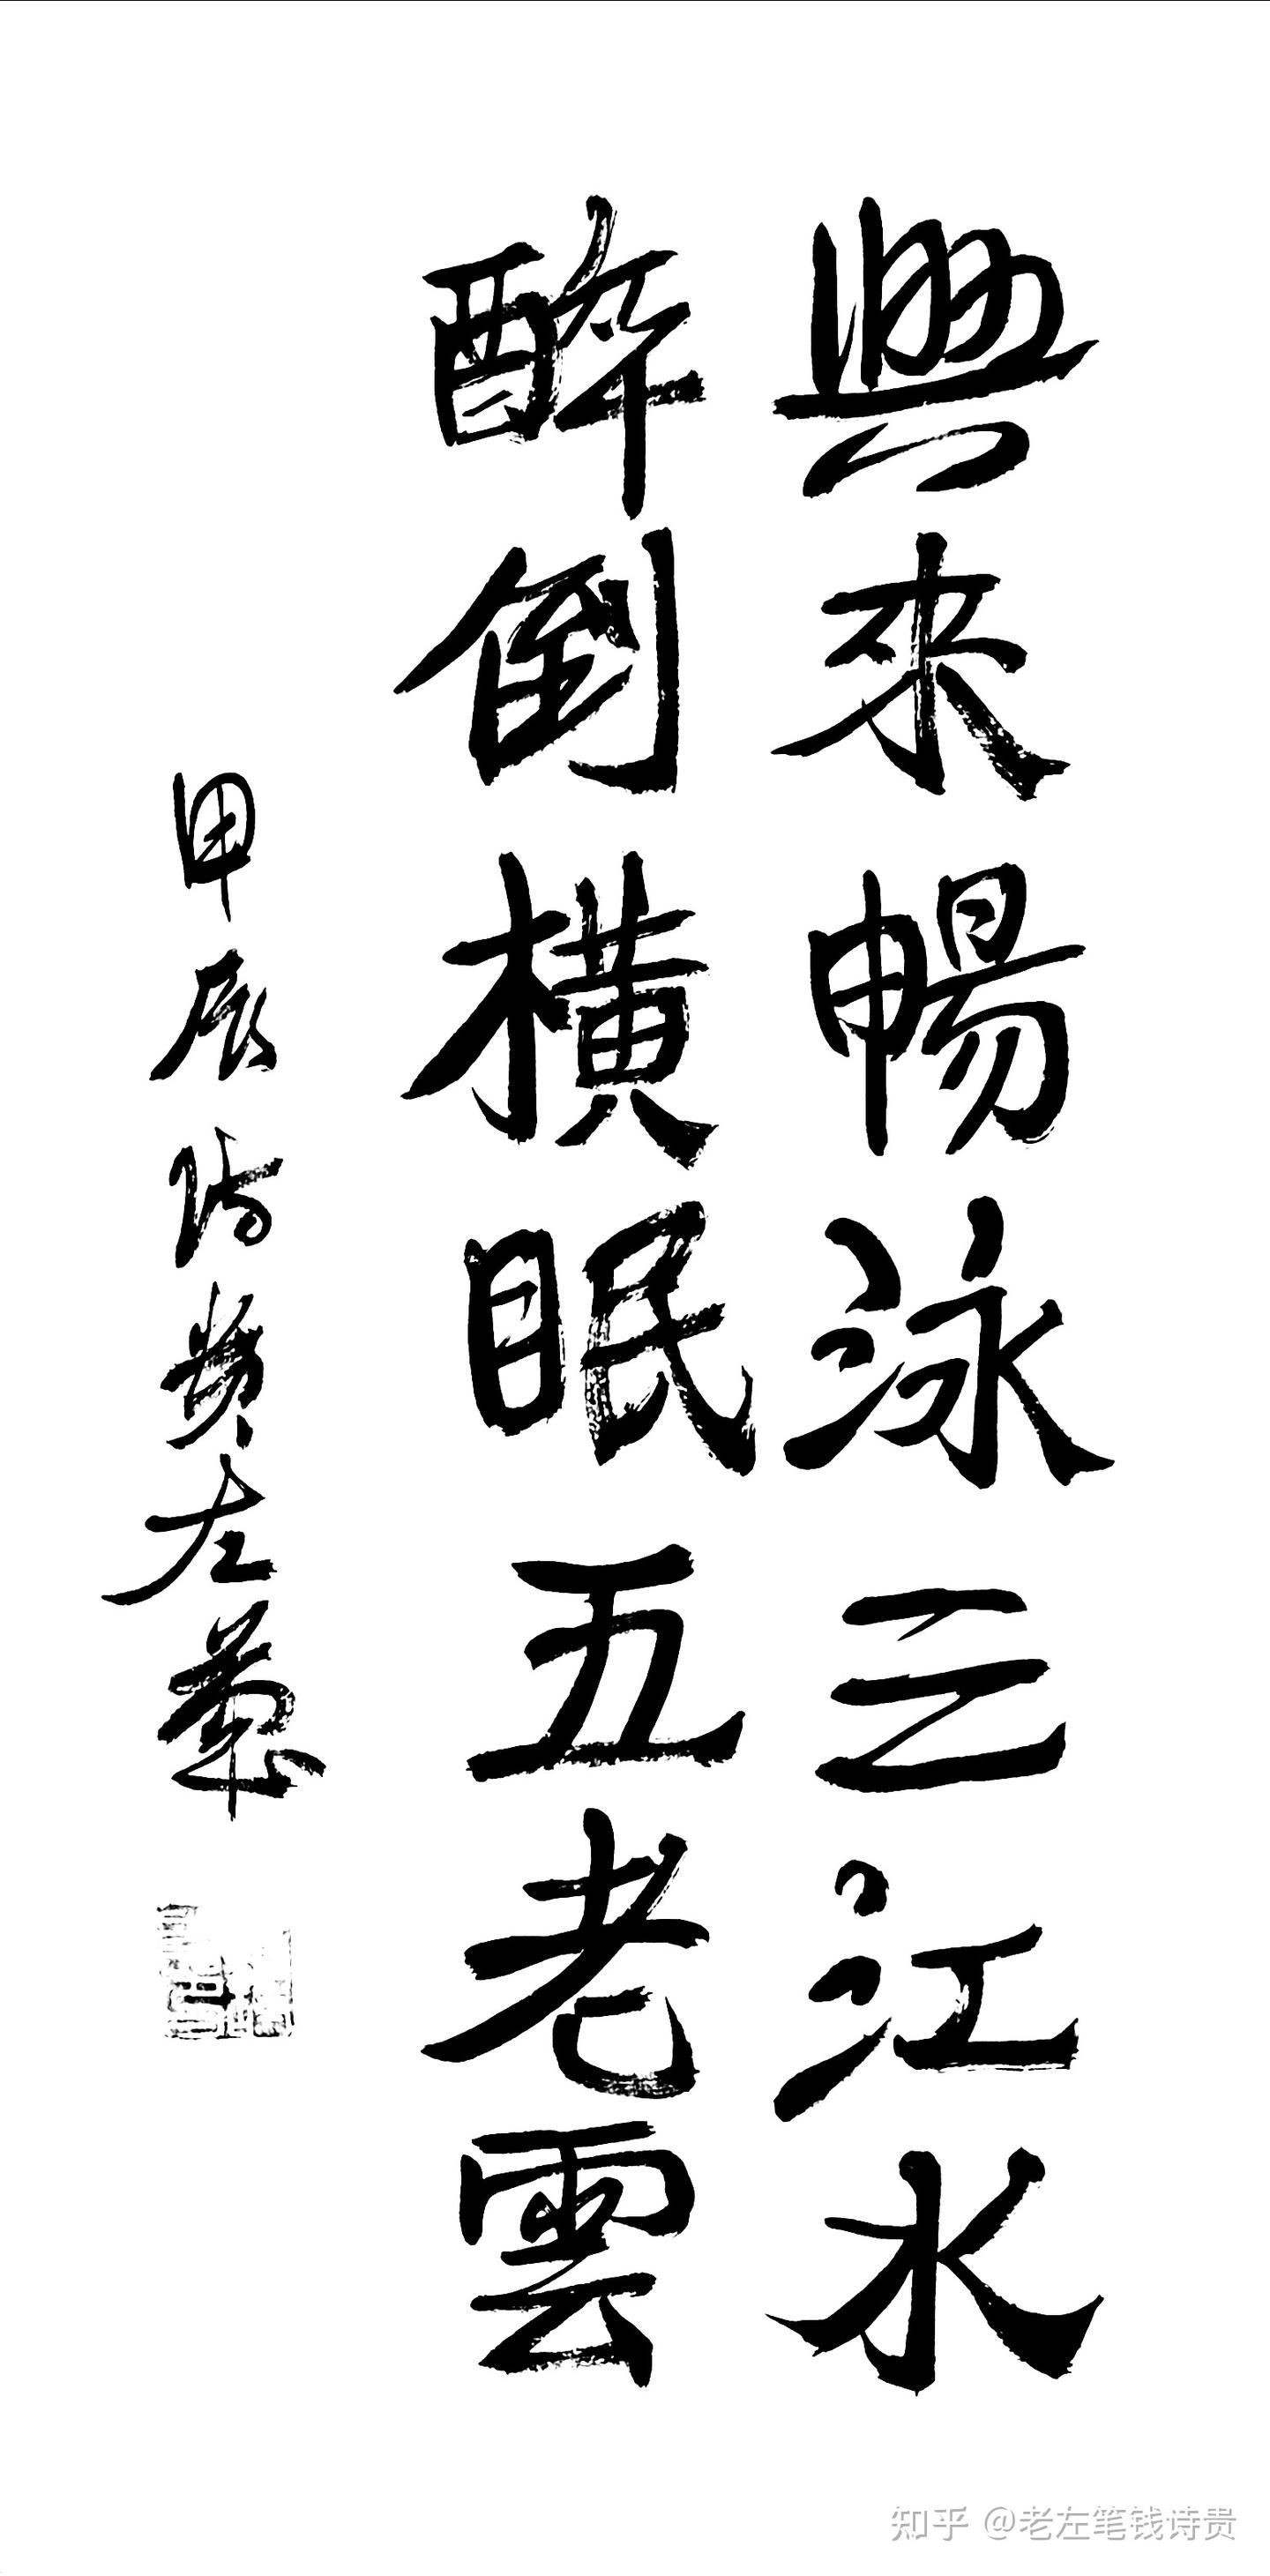 興來暢泳三江水
醉倒橫眠五老雲
甲辰诗贵左萬
知乎 @老左笔钱诗贵